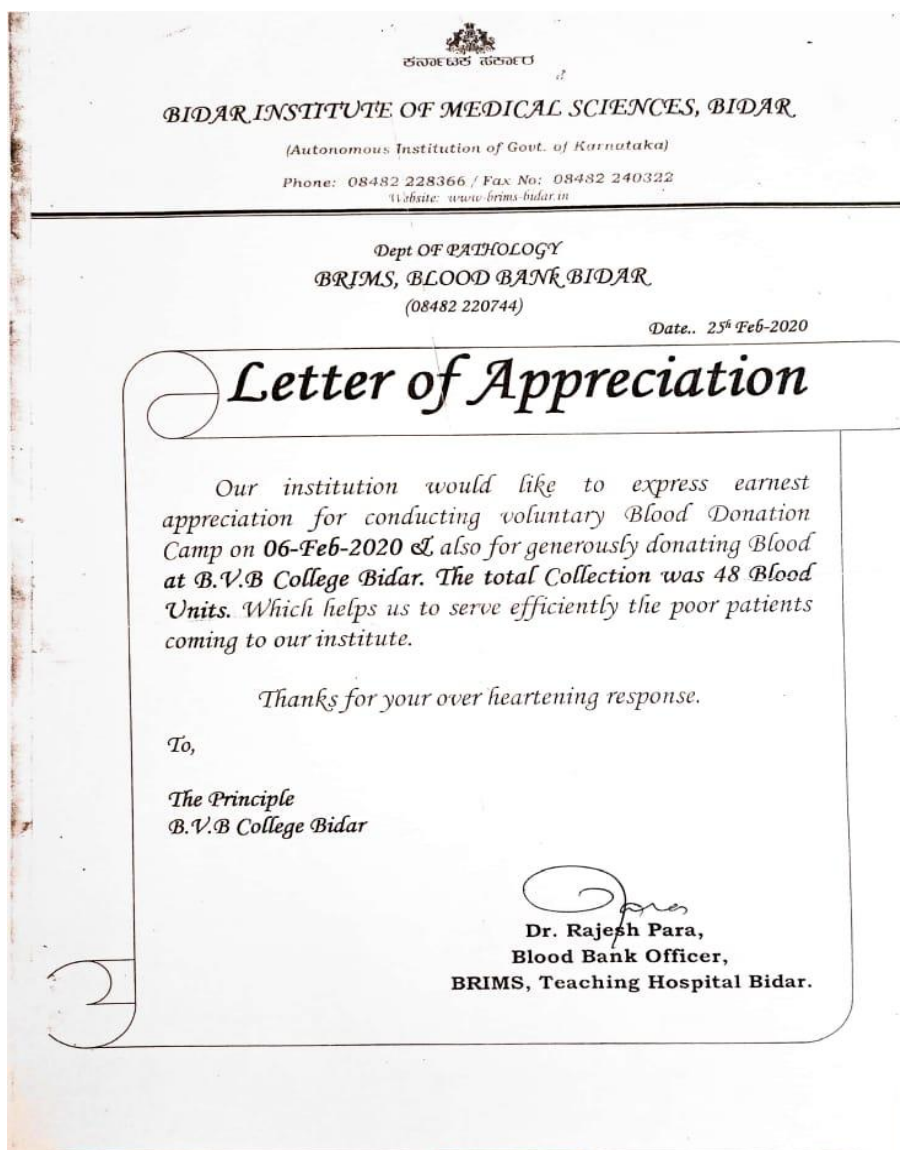 ಕರ್ನಾಟಕ ಸರ್ಕಾರ
BIDAR INSTITUTE OF MEDICAL SCIENCES, BIDAR
(Autonomous Institution of Govt. of Karnataka)
Phone: 08482 228366 / Fax No: 08482 240322
Website: www-brims-bidar.in
Dept OF PATHOLOGY
BRIMS, BLOOD BANK BIDAR
(08482 220744)
Date.. 25th Feb-2020
Letter of Appreciation
Our institution would like to express earnest
appreciation for conducting voluntary Blood Donation
Camp on 06-Feb-2020 & also for generously donating Blood
at B.V.B College Bidar. The total Collection was 48 Blood
Units. Which helps us to serve efficiently the poor patients
coming to our institute.
Thanks for your over heartening response.
To,
The Principle
B.V.B College Bidar
Dr. Rajesh Para,
Blood Bank Officer,
BRIMS, Teaching Hospital Bidar.